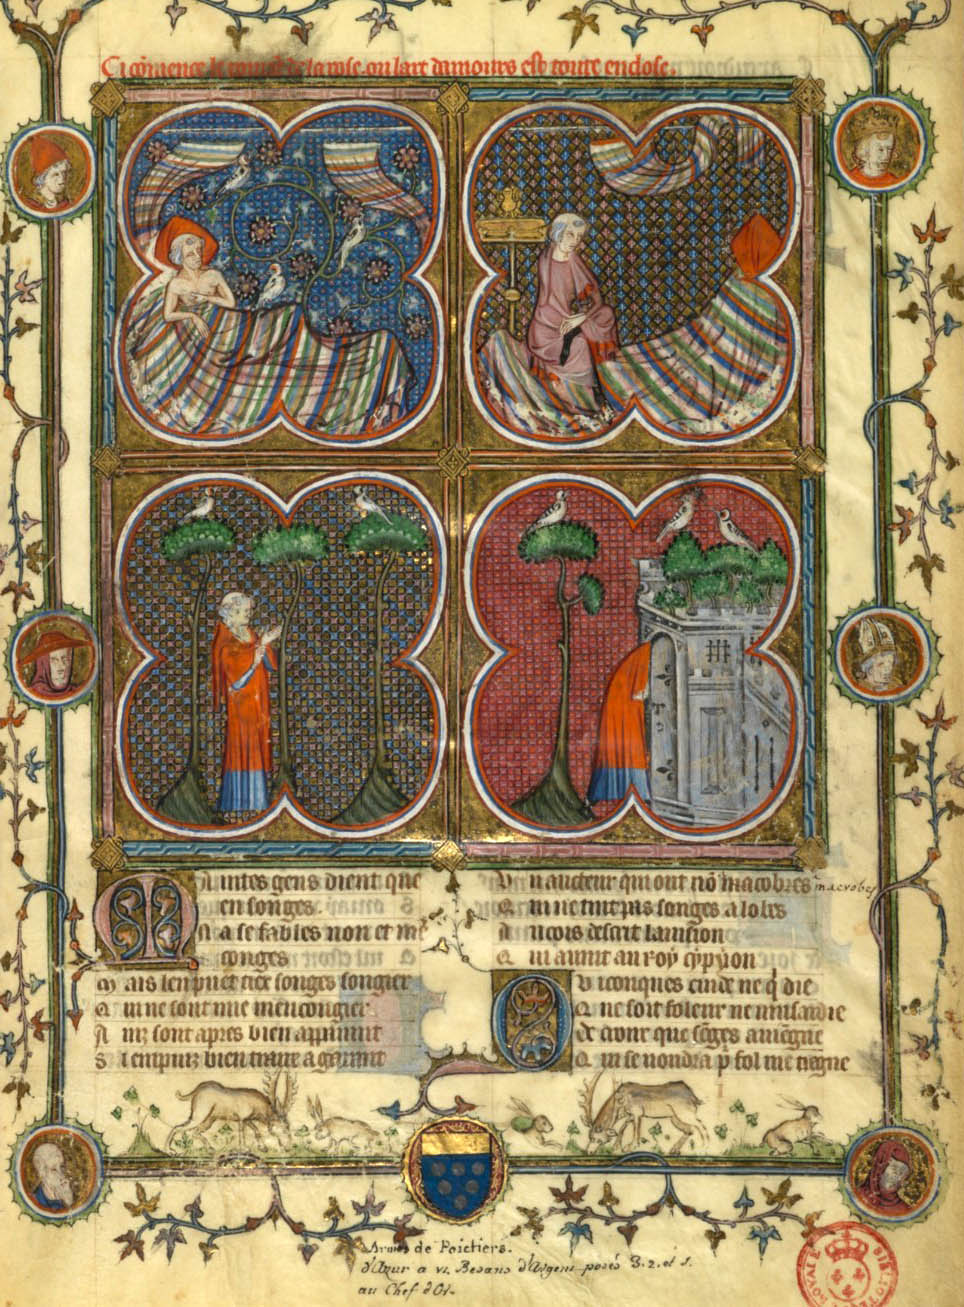 Ci cõmence le romãt de la rose. ou lart damours est toute enclose.
Maintes gens dient que
en songes
Na se fables non et me
conges
Mais len puet tiex songes songier
Qui ne sont mie mencongier
Ainz sont apres bien apparant
Si en puiz bien traire a garant
Un aucteur qui ont nõ macobres macrobes
Qui ne tint pas songes a lobes
Aincois descrit la uision
Qui auint au roy cypyon
Quiconques cuide ne q̃ die
Que soit foleur ne musardie
De croire que sõges auiẽgne
Qui se uondra p fol me tiegne
Armes de Poictiers.
d'Azur a vi. Besans d'Argent posés 3. 2. et 1.
au Chef d'Or.